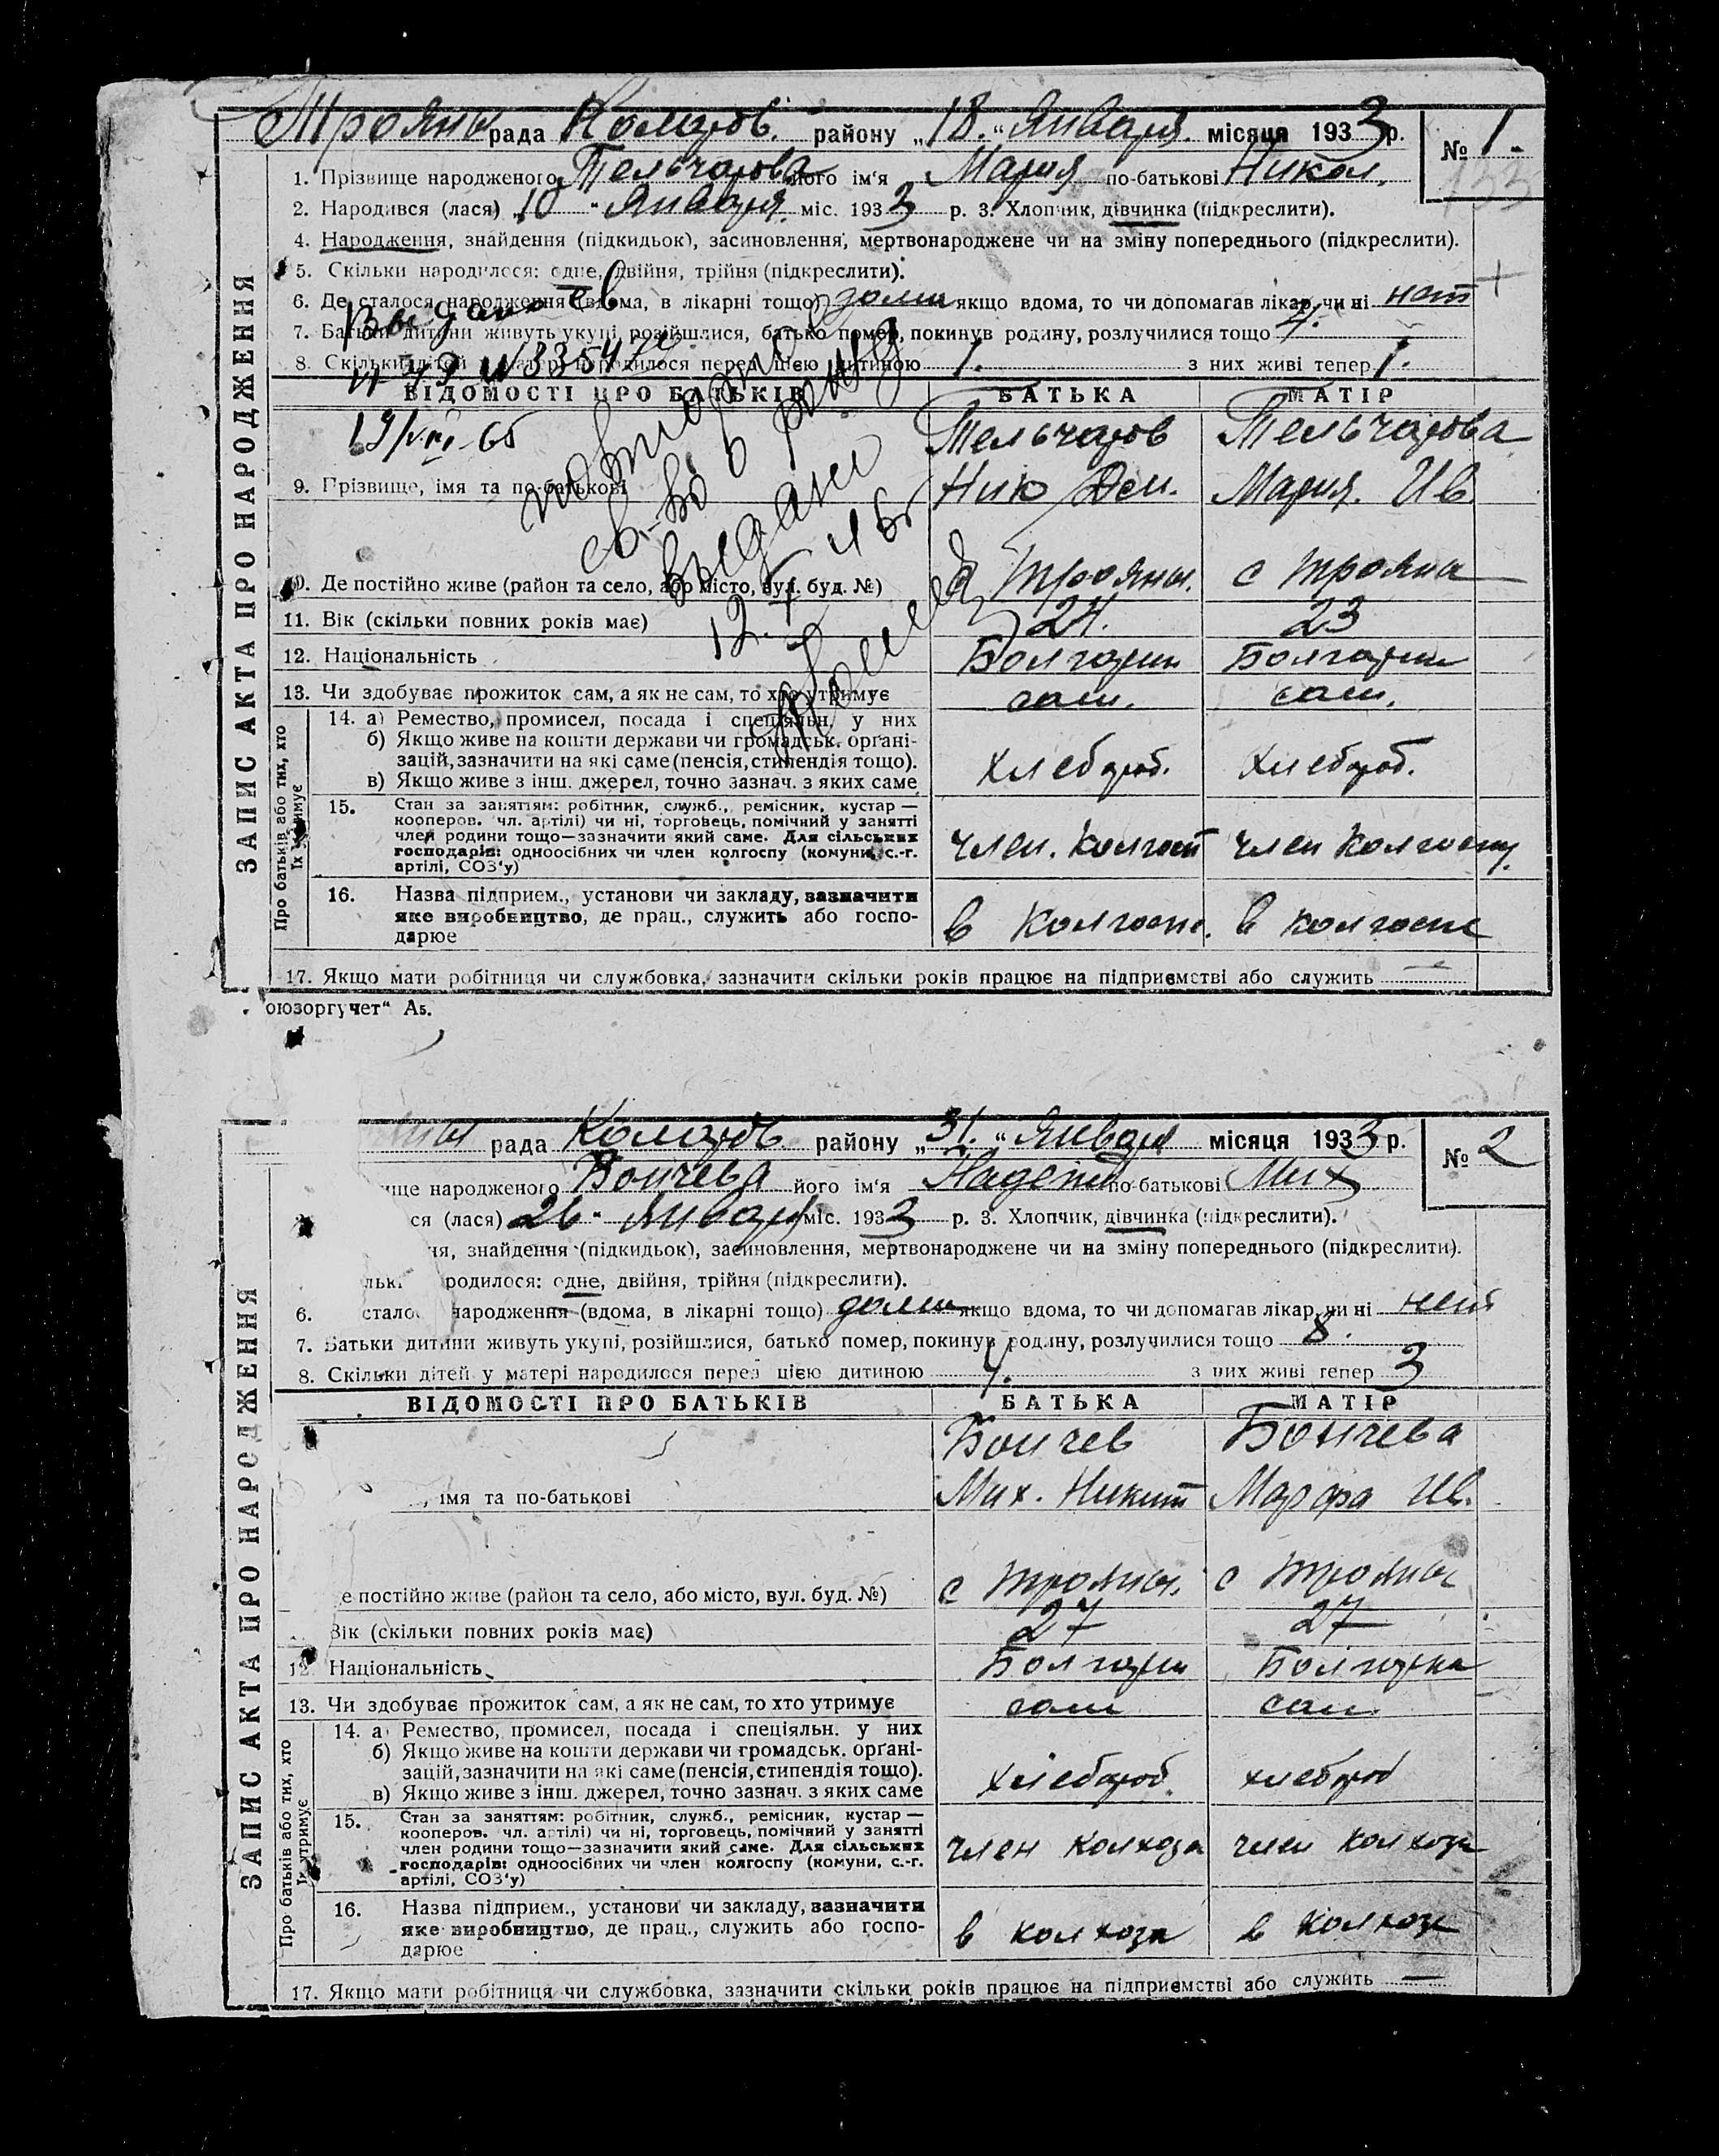 Трояны рада Коларов. району „18.“ Января. місяця 1933 р. № 1.
1. Прізвище народженого Тельчарова його ім'я Мария по-батькові Никол.
2. Народився (лася) „10“ Января. міс. 1933 р. 3. Хлопчик, дівчинка (підкреслити).
4. Народження, знайдення (підкидьок), засиновлення, мертвонароджене чи на зміну попереднього (підкреслити).
5. Скільки народилося: одне, двійня, трійня (підкреслити).
6. Де сталося народження (вдома, в лікарні тощо) дома якщо вдома, то чи допомагав лікар, чи ні нет
7. Батьки дитини живуть укупі, розійшлися, батько помер, покинув родину, розлучилися тощо
8. Скільки дітей у матері народилося перед цією дитиною 1. з них живі тепер 1.
ВІДОМОСТІ ПРО БАТЬКІВ БАТЬКА МАТІР
19/VIII-65
повторно
св-во о рожд
выдано
Тельчаров Тельчарова
9. Прізвище, імя та по-батькові Ник Дем. Мария. Ив.
10. Де постійно живе (район та село, або місто, вул. буд. №) с Трояны. с Трояны
11. Вік (скільки повних років має) 24. 23
12. Національність Болгарин Болгарин
13. Чи здобуває прожиток сам, а як не сам, то хто утримує сам. сам.
14. а) Ремество, промисел, посада і спеціяльн. у них
б) Якщо живе на кошти держави чи громадськ. органі-
зацій, зазначити на які саме (пенсія, стипендія тощо).
в) Якщо живе з інш. джерел, точно зазнач. з яких саме
хлебороб. хлебороб.
15. Стан за заняттям: робітник, служб., ремісник, кустар —
кооперов. чл. артілі) чи ні, торговець, помічний у занятті
член родини тощо—зазначити який саме. Для сільських
господарів: одноосібних чи член колгоспу (комуни, с.-г.
артілі, СОЗ'у)
член. колгосп член колгоспу.
16. Назва підприєм., установи чи закладу, зазначити
яке виробництво, де прац., служить або госпо-
дарює
в колгоспе. в колгоспе
17. Якщо мати робітниця чи службовка, зазначити скільки років працює на підприємстві або служить —
ЗАПИС АКТА ПРО НАРОДЖЕННЯ
Про батьків або тих, хто
їх утримує
оюзоргучет“ А5.
рада Коларов. району „31.“ Января місяця 1933 р. № 2
ище народженого Бончева його ім'я Надежд по-батькові Мих
ся (лася) „26“ Января міс. 1933 р. 3. Хлопчик, дівчинка (підкреслити).
ня, знайдення (підкидьок), засиновлення, мертвонароджене чи на зміну попереднього (підкреслити).
льк родилося: одне, двійня, трійня (підкреслити).
6. стало народження (вдома, в лікарні тощо) дома якщо вдома, то чи допомагав лікар, чи ні нет
7. Батьки дитини живуть укупі, розійшлися, батько помер, покинув родину, розлучилися тощо 8.
8. Скільки дітей у матері народилося перед цією дитиною 4. з них живі тепер 3
ВІДОМОСТІ ПРО БАТЬКІВ БАТЬКА МАТІР
Бончев Бончева
, імя та по-батькові Мих. Никит Марфа Ив.
е постійно живе (район та село, або місто, вул. буд. №) с Трояны. с Трояны
Вік (скільки повних років має) 27 27
12. Національність Болгарин Болгарка
13. Чи здобуває прожиток сам, а як не сам, то хто утримує сам сам.
14. а) Ремество, промисел, посада і спеціяльн. у них
б) Якщо живе на кошти держави чи громадськ. органі-
зацій, зазначити на які саме (пенсія, стипендія тощо).
в) Якщо живе з інш. джерел, точно зазнач. з яких саме
хлебороб. хлебороб
15. Стан за заняттям: робітник, служб., ремісник, кустар —
кооперов. чл. артілі) чи ні, торговець, помічний у занятті
член родини тощо—зазначити який саме. Для сільських
господарів: одноосібних чи член колгоспу (комуни, с.-г.
артілі, СОЗ'у)
член колхоза член колхоза
16. Назва підприєм., установи чи закладу, зазначити
яке виробництво, де прац., служить або госпо-
дарює
в колхозе в колхозе
17. Якщо мати робітниця чи службовка, зазначити скільки років працює на підприємстві або служить —
ЗАПИС АКТА ПРО НАРОДЖЕННЯ
Про батьків або тих, хто
їх утримує